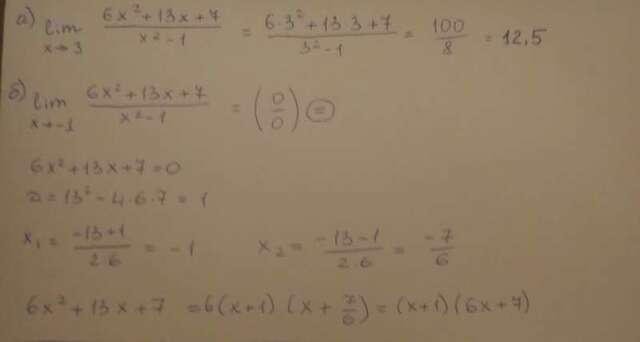 а) lim x→3 (6x²+13x+7)/(x²-1) = (6·3²+13·3+7)/(3²-1) = 100/8 = 12,5
б) lim x→-1 (6x²+13x+7)/(x²-1) = (0/0) =
6x²+13x+7=0
D=13²-4·6·7=1
x₁=(-13+1)/(2·6)=-1 x₂=(-13-1)/(2·6)=-7/6
6x²+13x+7 =6(x+1)(x+7/6)=(x+1)(6x+7)